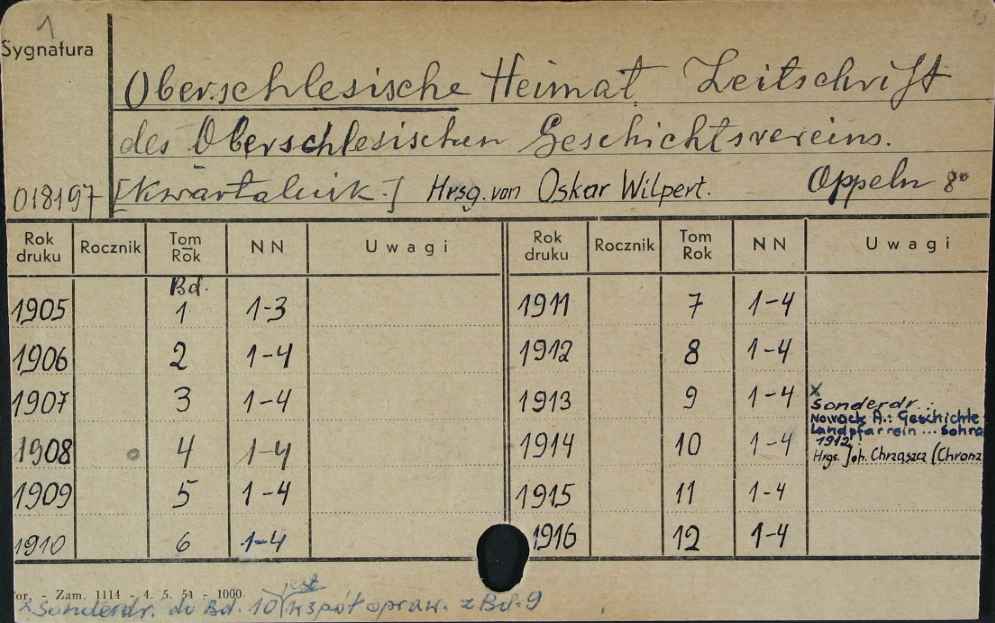 1
Sygnatura
Oberschlesische Heimat Zeitschrift
des Oberschlesischen Geschichtsvereins.
018197 [Kwartalnik.] Hrsg. von Oskar Wilpert. Oppeln 8°
Rok druku Rocznik Tom Rok NN Uwagi Rok druku Rocznik Tom Rok NN Uwagi
Bd.
1905 1 1-3 1911 7 1-4
1906 2 1-4 1912 8 1-4
1907 3 1-4 1913 9 1-4
x Sonderdr...
Nowack A.: Geschichte
Landpfarrein ... Sohra
1912
Hrgs. Joh. Chrząszcz (Chronz
1908 4 1-4 1914 10 1-4
1909 5 1-4 1915 11 1-4
1910 6 1-4 1916 12 1-4
or. - Zam. 1114 - 4. 5. 51 - 1000
x Sonderdr. do Bd. 10 jest współopraw. z Bd. 9